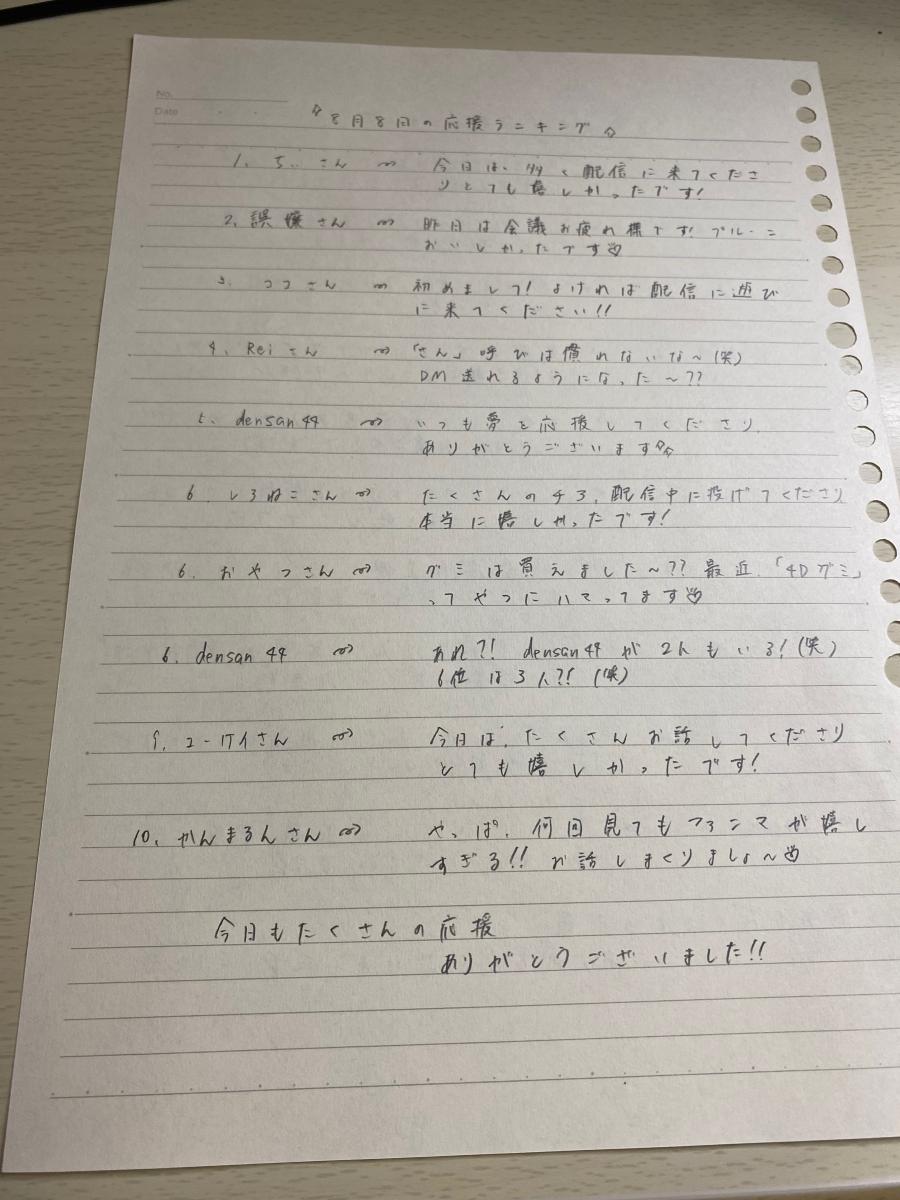 No.
Date
☆8月8日の応援ランキング☆
1. ちぃさん ⇨ 今日は、夕夕く配信に来てくださ
りとても嬉しかったです!
2. 誤嬢さん ⇨ 昨日は会議お疲れ様です! プルーニ
おいしかったです♡
3. ココさん ⇨ 初めまして! よければ配信に遊び
に来てください!!
4. Reiさん ⇨ 「さん」呼びは慣れないな〜(笑)
DM送れるようになった〜??
5. densan44 ⇨ いつも夢を応援してくださり、
ありがとうございます☆
6. しろねこさん ⇨ たくさんのチヨ、配信中に投げてくださり
本当に嬉しかったです!
6. おやつさん ⇨ グミは買えました〜?? 最近、「4Dグミ」
ってやつにハマってます♡
6. densan44 ⇨ あれ?! densan44が2人もいる! (笑)
6位は3人?! (笑)
9. ユーケイさん ⇨ 今日は、たくさんお話してくださり
とても嬉しかったです!
10. かんまるんさん ⇨ やっぱ、何回見てもファンマが嬉し
すぎる!! お話しまくりましょ〜♡
今日もたくさんの応援
ありがとうございました!!